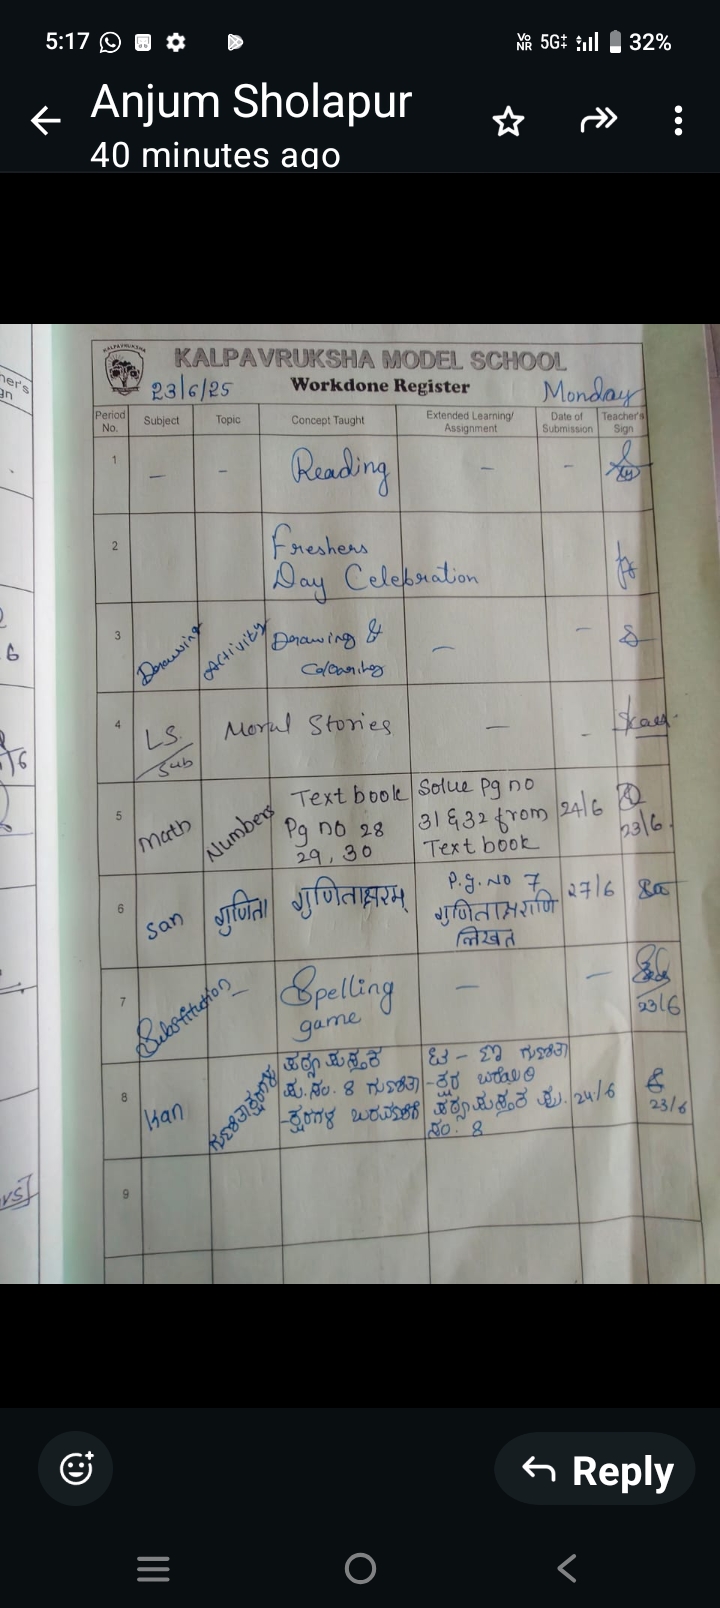 5:17
Vo NR 5G+ 32%
Anjum Sholapur
40 minutes ago
KALPAVRUKSHA MODEL SCHOOL
23/6/25 Workdone Register Monday
Period No. Subject Topic Concept Taught Extended Learning/ Assignment Date of Submission Teacher's Sign
1 - - Reading - -
2 Freshers
Day Celebration
3 Drawing Activity Drawing & - -
Colouring
4 LS. Moral Stories - -
Sub
5 Math Numbers Text book Solve Pg no 24/6
Pg no 28 31 & 32 from 23/6.
29, 30 Text book
6 san गुणिता गुणिताक्षरम् P.g. No 7 27/6
गुणिताक्षराणि
लिखत
7 Substitution - Spelling - -
game 23/6
8 Kan ಗುಣಿತಾಕ್ಷರಗಳು ಪಠ್ಯ ಪುಸ್ತಕ ಗುಣಿತಾ
ಪು.ಸಂ. 8 ಗುಣಿತಾ -ಕ್ಷರ ಬರೆಯಿರಿ
-ಕ್ಷರಗಳ ಪಠ್ಯಪುಸ್ತಕ ಪು. 24/6 23/6
ಸಂ. 8
9
Reply